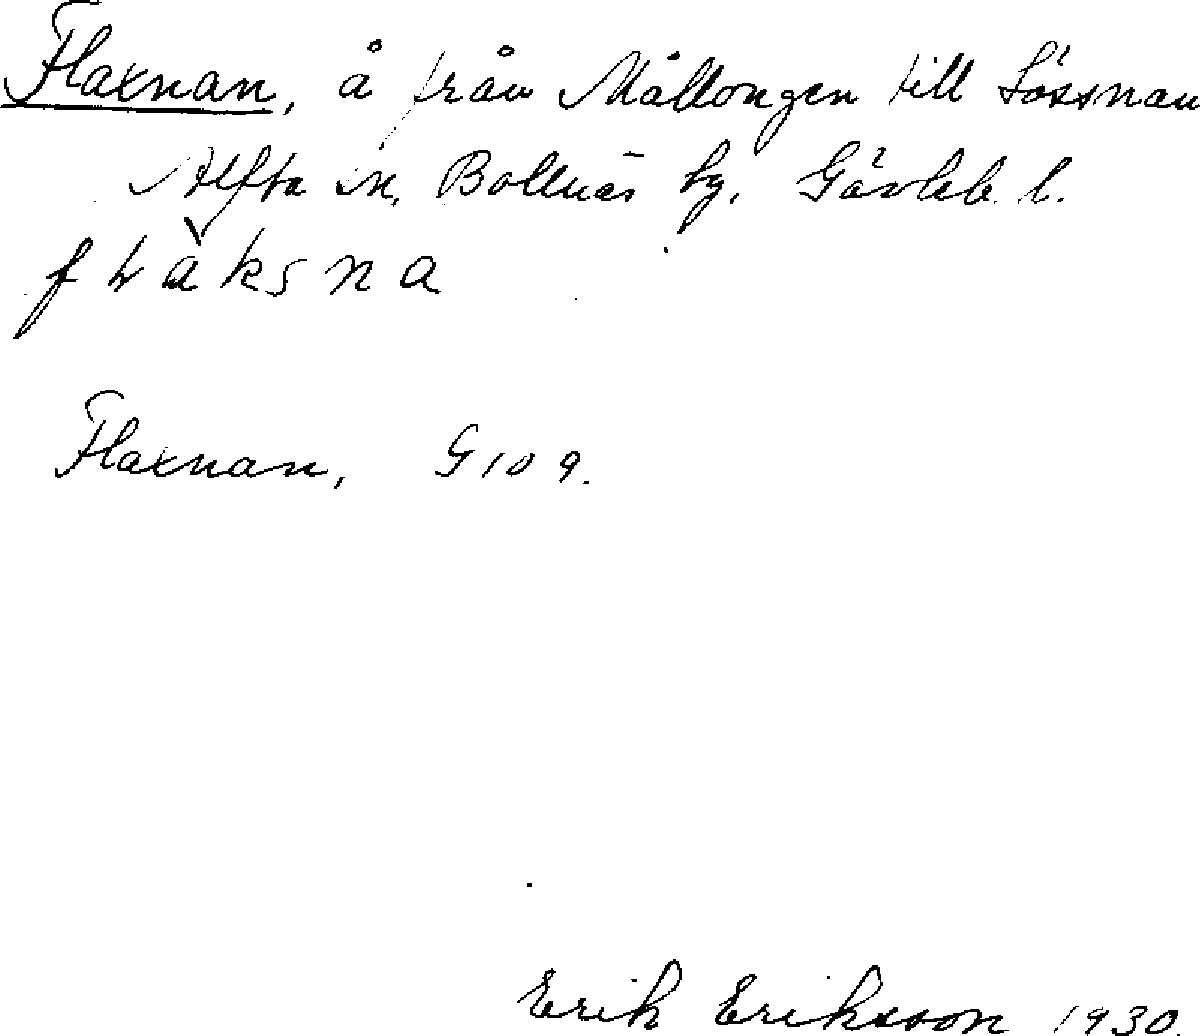 Flaxnan, å från Mållongen till Lössnan
Alfta sn, Bollnäs tg. Gävleb. l.
f ł ǎ k s n a
Flaxnan, G 109.
Erik Eriksson 1930.